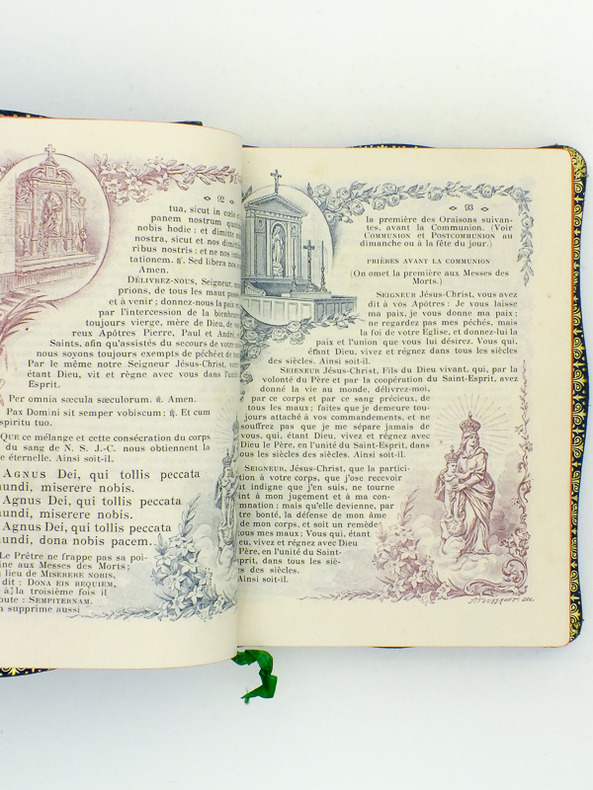 92
tua, sicut in cœlo e
panem nostrum quoti
nobis hodie : et dimitte n
nostra, sicut et nos dimitti
ribus nostris : et ne nos indu
tationem. ℟. Sed libera nos a
Amen.
DÉLIVREZ-NOUS, Seigneur, nou
prions, de tous les maux passé
et à venir ; donnez-nous la paix e
par l'intercession de la bienheure
toujours vierge, mère de Dieu, de vos
reux Apôtres Pierre, Paul et André,
Saints, afin qu'assistés du secours de votre m
nous soyons toujours exempts de péché et de to
Par le même notre Seigneur Jésus-Christ, votr
étant Dieu, vit et règne avec vous dans l'uni
Esprit.
Per omnia sæcula sæculorum. ℟. Amen.
Pax Domini sit semper vobiscum ; ℟. Et cum
spiritu tuo.
QUE ce mélange et cette consécration du corps
du sang de N. S. J.-C. nous obtiennent la
e éternelle. Ainsi soit-il.
AGNUS Dei, qui tollis peccata
mundi, miserere nobis.
Agnus Dei, qui tollis peccata
mundi, miserere nobis.
Agnus Dei, qui tollis peccata
mundi, dona nobis pacem.
Le Prêtre ne frappe pas sa poi-
ine aux Messes des Morts ;
u lieu de MISERERE NOBIS,
dit : DONA EIS REQUIEM,
à la troisième fois il
oute : SEMPITERNAM.
n supprime aussi
93
la première des Oraisons suivan-
tes, avant la Communion. (Voir
COMMUNION et POSTCOMMUNION au
dimanche ou à la fête du jour.)
PRIÈRES AVANT LA COMMUNION
(On omet la première aux Messes des
Morts.)
SEIGNEUR Jésus-Christ, vous avez
dit à vos Apôtres : Je vous laisse
ma paix, je vous donne ma paix ;
ne regardez pas mes péchés, mais
la foi de votre Eglise, et donnez-lui la
paix et l'union que vous lui désirez. Vous qui,
étant Dieu, vivez et régnez dans tous les siècles
des siècles. Ainsi soit-il.
SEIGNEUR Jésus-Christ, Fils du Dieu vivant, qui, par la
volonté du Père et par la coopération du Saint-Esprit, avez
donné la vie au monde, délivrez-moi,
par ce corps et par ce sang précieux, de
tous les maux ; faites que je demeure tou-
jours attaché à vos commandements, et ne
souffrez pas que je me sépare jamais de
vous, qui, étant Dieu, vivez et régnez avec
Dieu le Père, en l'unité du Saint-Esprit, dans
ous les siècles des siècles. Ainsi soit-il.
SEIGNEUR, Jésus-Christ, que la partici-
tion à votre corps, que j'ose recevoir
ut indigne que j'en suis, ne tourne
int à mon jugement et à ma con-
mnation ; mais qu'elle devienne, par
tre bonté, la défense de mon âme
de mon corps, et soit un remède
tous mes maux ; Vous qui, étant
eu, vivez et régnez avec Dieu
Père, en l'unité du Saint-
prit, dans tous les siè-
es des siècles.
Ainsi soit-il.